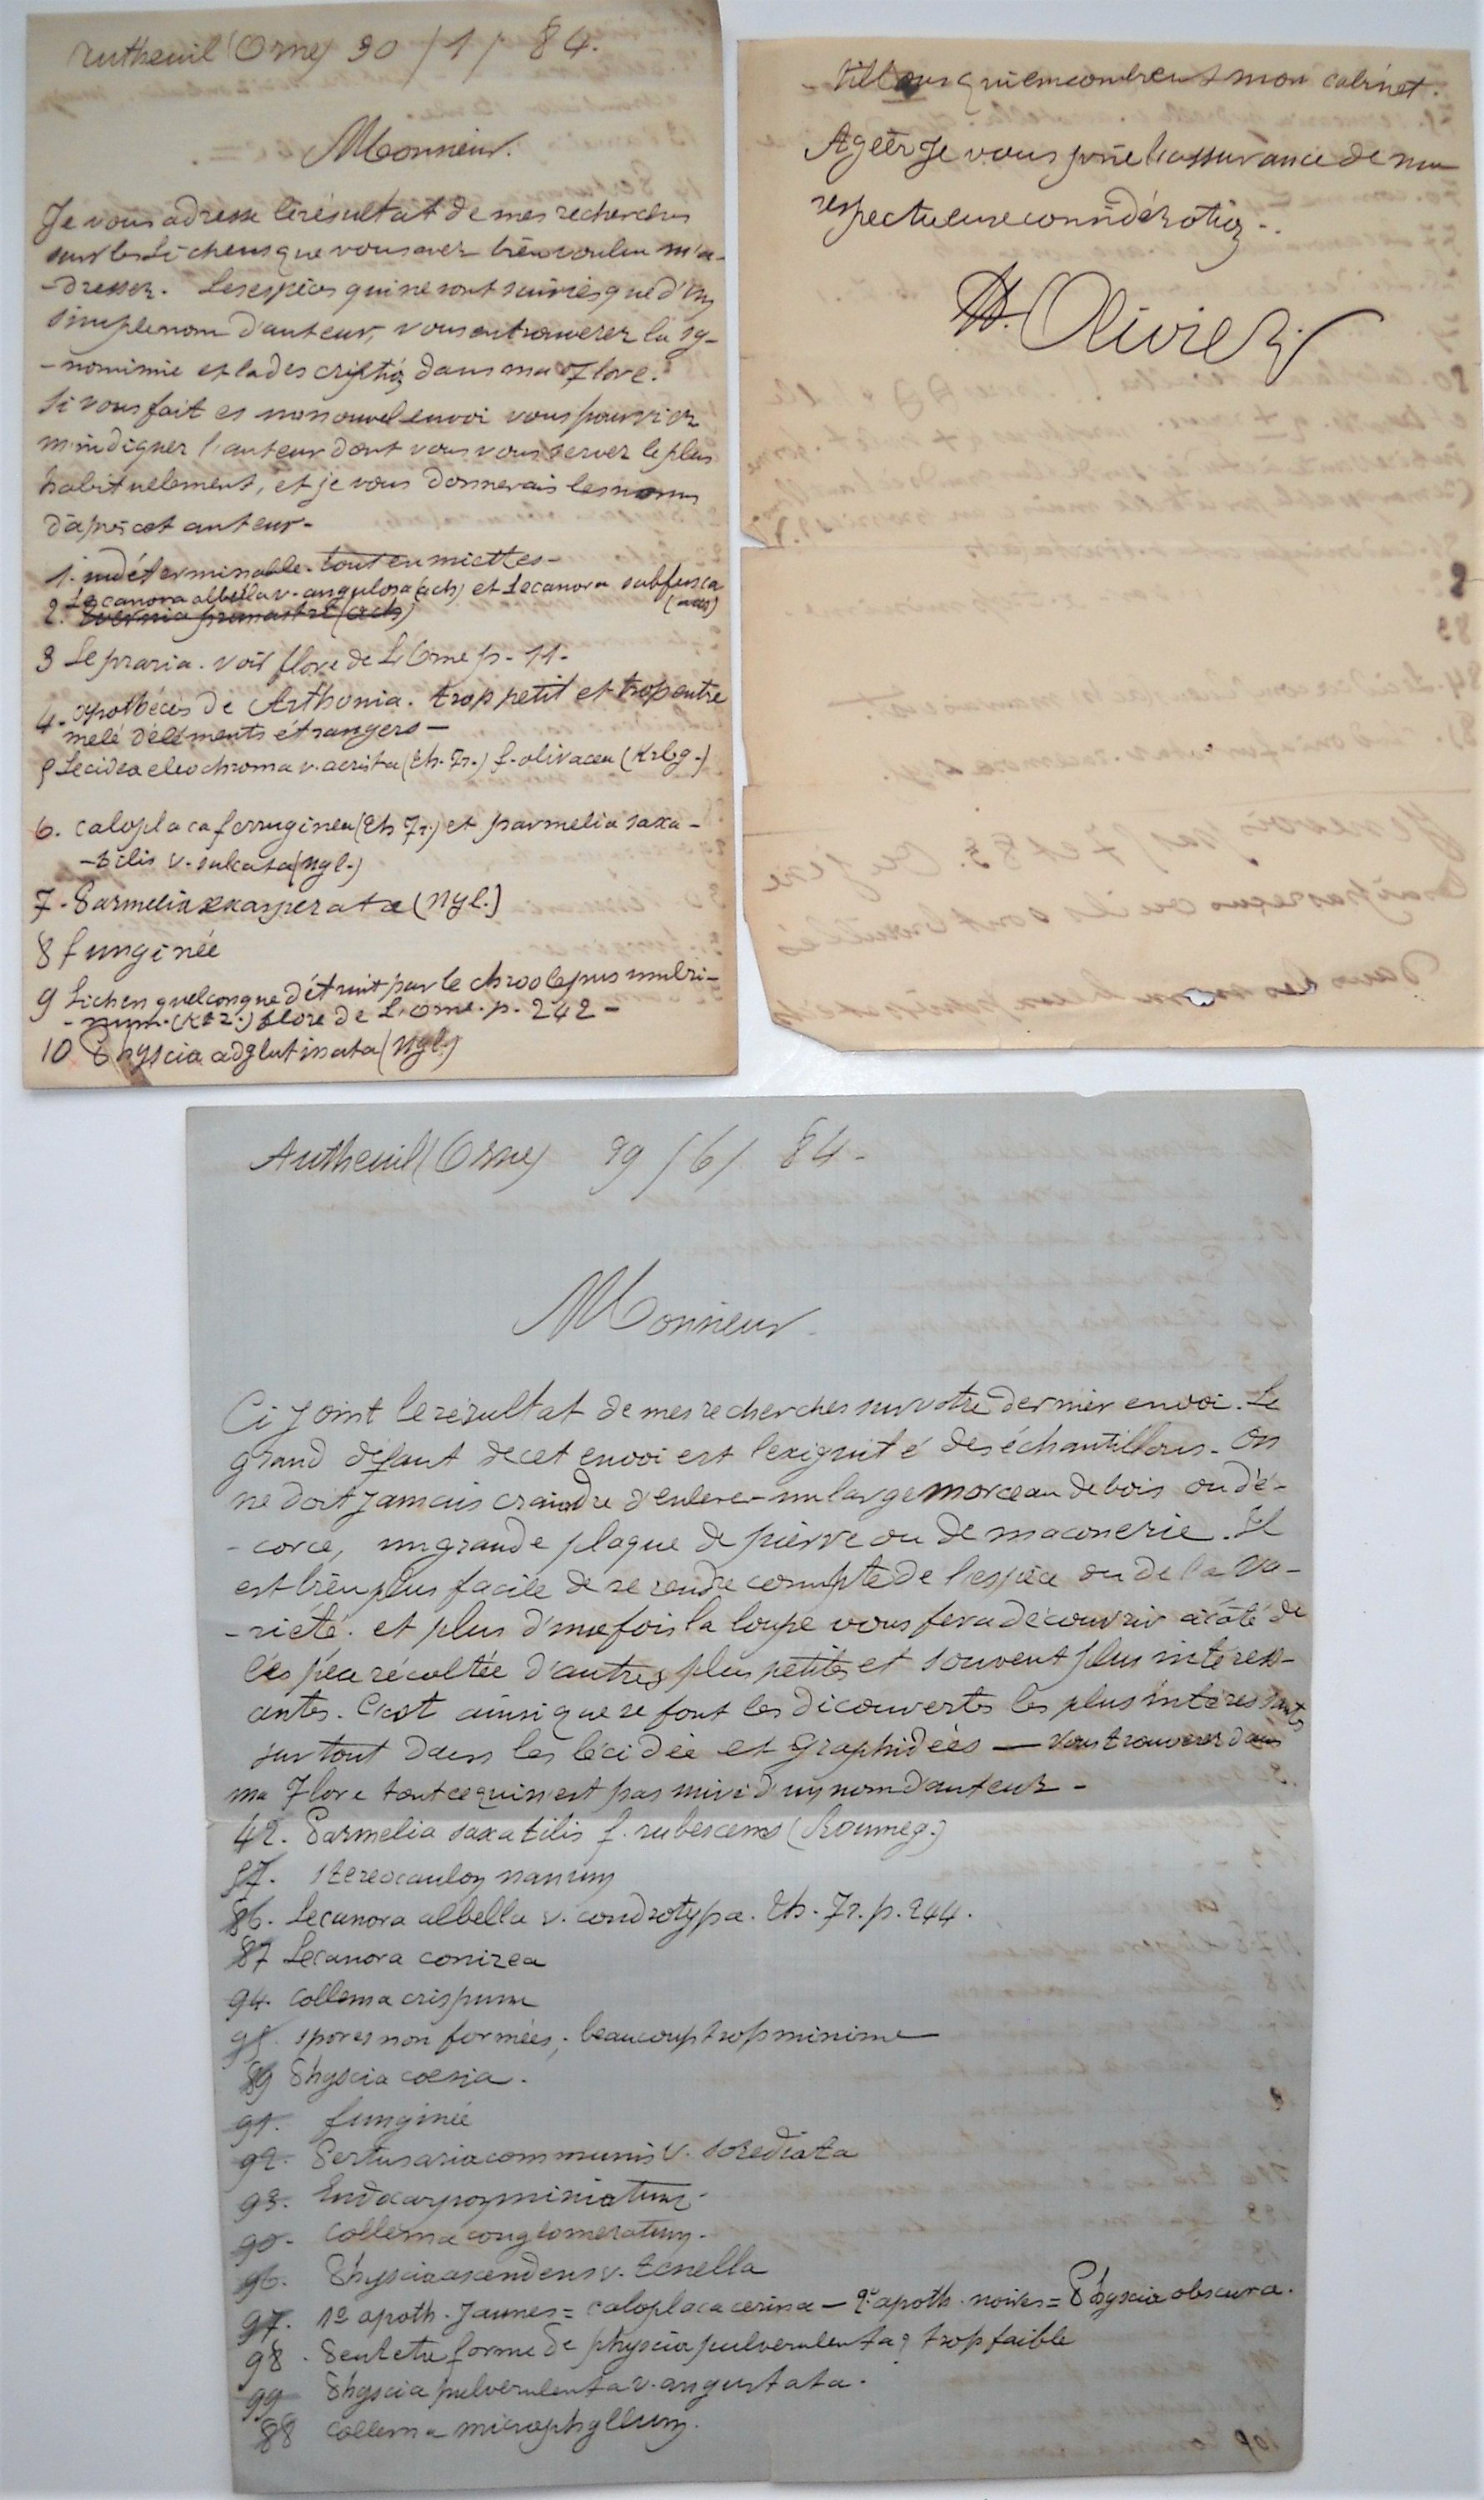 Autheuil (Orne) 30/1/84.
Monsieur.
Je vous adresse le résultat de mes recherches
sur les Lichens que vous avez bien voulu m'a-
-dresser. Les espèces qui ne sont suivies que d'un
simple nom d'auteur, vous en trouverez la sy-
-nonimie et la description dans ma Flore.
Si vous faites un nouvel envoi vous pourriez
m'indiquer l'auteur dont vous vous servez le plus
habituellement, et je vous donnerais les noms
d'après cet auteur-
1. indéterminable. tout en miettes-
2. Lecanora albella v. angulosa (ach) et Lecanora subfusca
Evernia prunastri (ach)
3 Lepraria. voir flore de L'Orne p. 11-
4- apothécies de Arthonia. trop petit et trop entre
melé d'éléments étrangers-
5 Lecidea eleochroma v. acrista (Th. Fr.) f. olivacea (Krbg.)
6. caloplaca ferruginea (Th Fr.) et parmelia saxa-
-tilis v. sulcata (Nyl.)
7- Parmelia exasperata (Nyl.)
8 funginée
9 Lichen quelconque détruit par le chroolepus umbri-
-num. (Ktz.) flore de L'Orne. p. 242-
10 Physcia adglutinata (Nyl.)
-tillons qui encombrent mon cabinet.
Agéer je vous prie l'assurance de ma
respectueuse considération..
H. Olivier
Autheuil (Orne) 29/6/84-
Monsieur.
Ci joint le résultat de mes recherches sur votre dernier envoi. Le
grand défaut de cet envoi est l'exiguité des échantillons. On
ne doit jamais craindre d'enlever un large morceau de bois ou d'é-
-corce, un grande plaque de pierre ou de maconerie. Il
est bien plus facile de se rendre compte de l'espèce ou de la va-
-riété. et plus d'une fois la loupe vous fera découvrir à côté de
l'espèce récoltée d'autres plus petites et souvent plus intéress-
antes. C'est ainsi que se font les découvertes les plus intéressantes
surtout dans les lécidée et Graphidées — Vous trouverez dans
ma Flore tout ce qui n'est pas suivi d'un nom d'auteur-
42. Parmelia saxatilis f. rubescens (Roumeg.)
57. Stereocaulon nanum
86. Lecanora albella v. condrotypa. Th. Fr. p. 244.
87 Lecanora conizea
94. Collema crispum
95. spores non formées; beaucoup trop minime
89 Physcia coesia.
91. funginée
92. Pertusaria communis v. sorediata
93. Endocarpon miniatum.
90- Collema conglomeratum.
96. Physcia ascendens v. tenella
97. 1º apoth. Jaunes = caloplaca cerina — 2º apoth. noires = Physcia obscura.
98. Peut etre forme de physcia pulverulenta; trop faible
99 Physcia pulverulenta v. angustata.
88 Collema microphyllum.